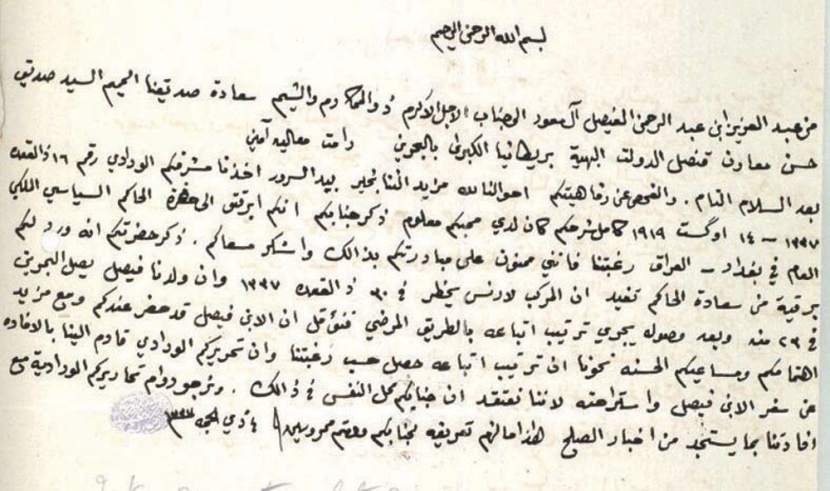 بسم الله الرحمن الرحيم
من عبد العزيز ابن عبد الرحمن الفيصل آل سعود الى جناب الاجل الاكرم ذو المكارم والشيم سعادة صديقنا الحميم السيد صديق
حسن معاون قنصل الدولت البهية بريطانيا الكبرى بالبحرين دامت معاليه آمين
بعد السلام التام . والفحص عن رفاهيتكم احوالنا لله مزيد الثنا بخير بيد السرور اخذنا مشرفكم الودادي رقم ١٦ ذالقعده
١٣٣٧ – ١٤ اوگست ١٩١٩ كامل شرحكم كان لدي محبكم معلوم ذكر جنابكم انكم ابرقتو الى حضرة الحاكم السياسي الملكي
العام في بغداد – العراق رغبتنا فانني ممنون على مبادرتكم بذالك واشكر مسعاكم . ذكر حضرتكم انه ورد لكم
برقية من سعادة الحاكم تفيد ان المركب لارنس يخطر في ٣٠ ذالقعده ١٣٣٧ وان ولدنا فيصل يصل البحرين
في ٢٣ منه وبعد وصوله يجري ترتيب اتباعه بالطريق المرضي فنؤمل ان الابن فيصل قد حضر عندكم ومع مزيد
اهتمامكم ومساعيكم الحسنه نحونا ان ترتيب اتباعه حصل حسب رغبتنا وان تحريركم الودادي قادم الينا بالافاده
عن سفر الابن فيصل واستراحته لاننا نعتقد ان جنابكم محل النفس في ذالك . ونرجو دوام تحاريركم الودادية مع
افادتنا بما يستجد من اخبار الصلح هذا مالزم تعريفه لجنابكم ودمتم محروسين ٤ ذي الحجه ١٣٣٧